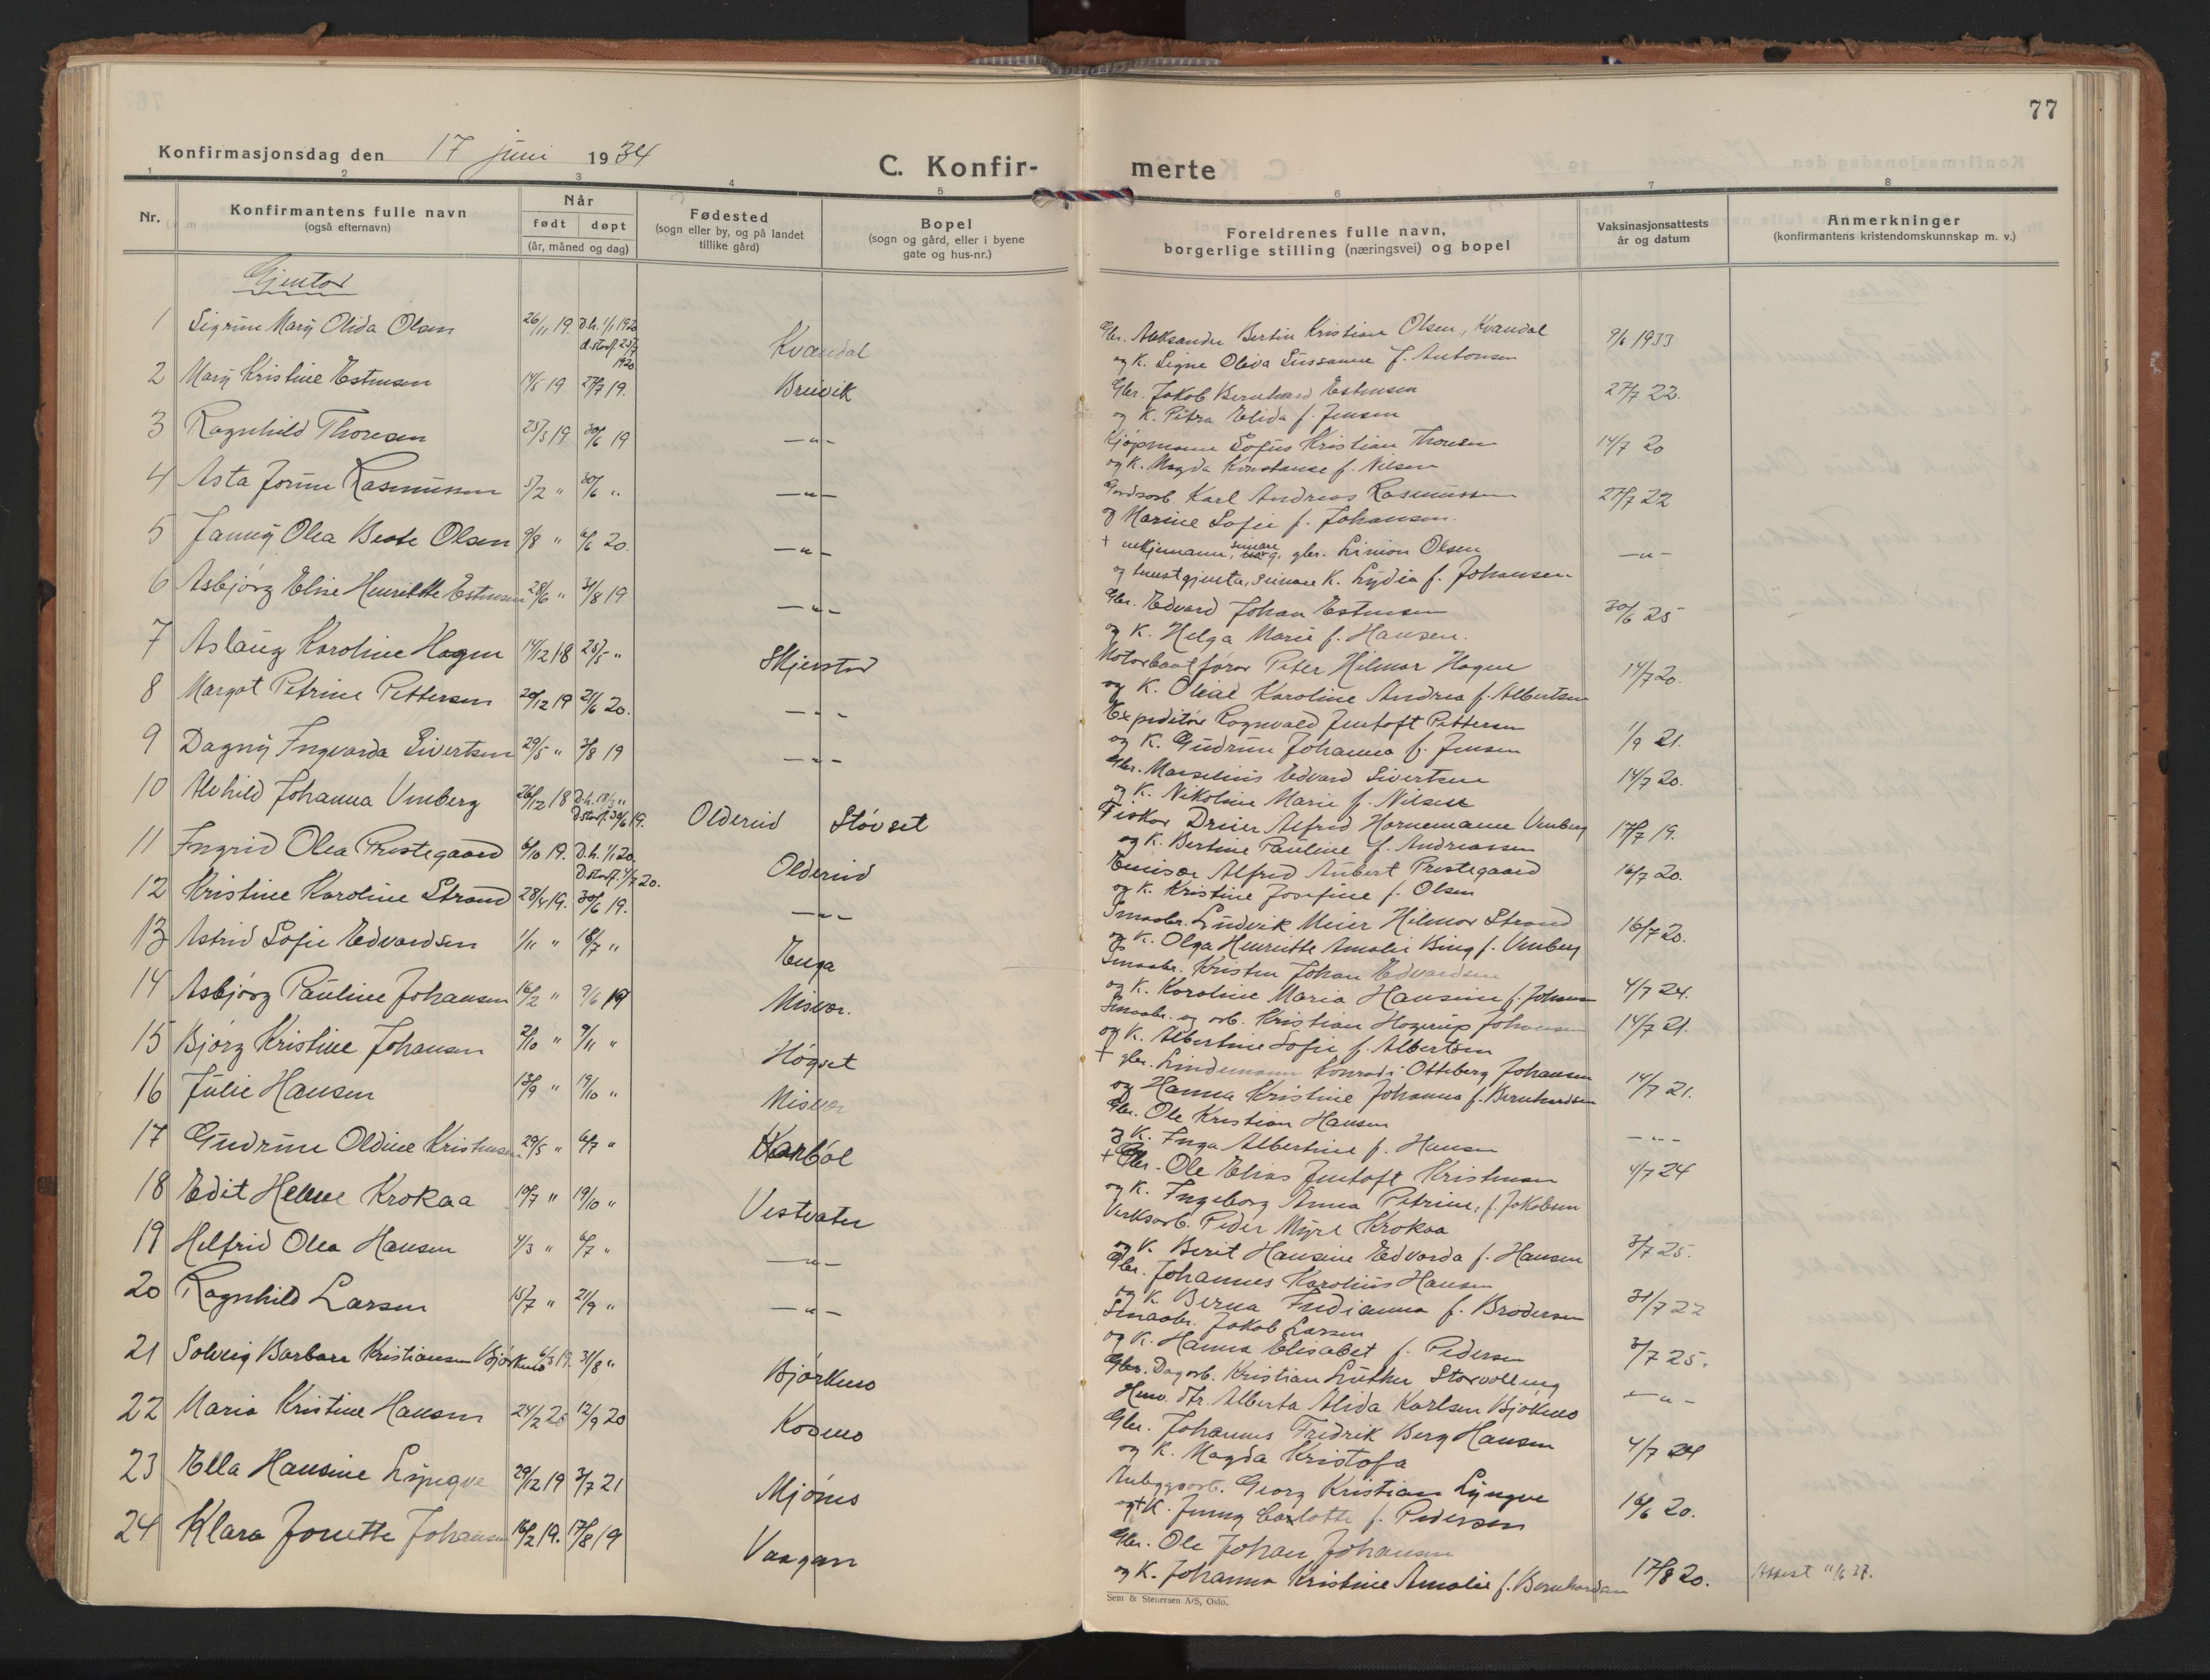 77
Konfirmasjonsdag den 17 juni 1934
C. Konfir- merte
1 2 3 4 5 6 7 8
Nr.
Konfirmantens fulle navn
(også efternavn)
Når
født døpt
(år, måned og dag)
Fødested
(sogn eller by, og på landet
tillike gård)
Bopel
(sogn og gård, eller i byene
gate og hus-nr.)
Foreldrenes fulle navn,
borgerlige stilling (næringsvei) og bopel
Vaksinasjonsattests
år og datum
Anmerkninger
(konfirmantens kristendomskunnskap m. v.)
Gjentor
1 Sigrun Mary Olida Olsen 26/11 19. D.h. 1/1 1920 Kvandal Gbr. Aleksander Bertin Kristian Olsen, Kvandal 9/6 1933
d. stadf. 25/7 1920 og K. Signe Oliva Sussanne f. Antonsen
2 Mary Kristine Estensen 14/5 19 27/7 19. Breivik Gbr. Jakob Bernhard Estensen 27/7 22.
og K. Petra Elida f. Jensen
3 Ragnhild Thoresen 25/3 19 30/6 19 —"— Kjøpmann Sofus Kristian Thoresen 14/7 20
og K. Magda Konstanse f. Nilsen
4 Asta Jorunn Rasmussen 5/2 " 30/6 " —"— Gardsarb. Karl Andreas Rasmussen 27/7 22
og Marine Sofie f. Johansen.
5 Janny Olea Beate Olsen 9/8 " 6/6 20. —"— + unkjemann, senere gbr. Simon Olsen —"—
og tenestgjenta, senere K. Lydia f. Johansen
6 Asbjørg Elise Henriette Estensen 28/6 " 31/8 19 —"— Gbr. Edvard Johan Estensen 30/6 25
og K. Helga Marie f. Hansen.
7 Aslaug Karoline Hagen 14/12 18 25/5 " Skjerstad Motorbaatfører Peter Hilmar Hagen 14/7 20.
og K. Oleal Karoline Andrea f. Albertsen
8 Margot Petrine Pettersen 20/12 19 21/6 20. —"— Expeditør Ragnvald Jentoft Pettersen 1/9 21.
og K. Gudrun Johanna f. Jensen
9 Dagny Ingvarda Sivertsen 29/5 " 3/8 19 —"— Gbr. Marselius Edvard Sivertsen 14/7 20.
og K. Nikoline Marie f. Nilsen
10 Alvhild Johanna Vinberg 26/12 18 D.h. 18/3 " Oldereid Støvset Fisker Dreier Alfred Hornemann Vinberg 17/7 19.
D. stadf. 30/6 19. og K. Bertine Pauline f. Andreassen
11 Ingrid Olea Prestegaard 6/10 19. D.h. 1/1 20. Oldereid Emisær Alfred Aubert Prestegaard 16/7 20.
D. stadf. 4/7 20. og K. Kristine Josefine f. Olsen
12 Kristine Karoline Strand 28/4 19. 30/6 19. —"— Smaabr. Ludvik Meier Hilmar Strand 16/7 20.
og K. Olga Henriette Amalie Bing f. Vinberg
13 Astrid Sofie Edvardsen 1/11 " 18/7 " Enga Smaabr. Kristen Johan Edvardsen 4/7 24.
og K. Karoline Maria Hansine f. Johansen
14 Asbjørg Pauline Johansen 16/2 " 9/6 19 Misvær. Smaabr. og arb. Kristian Hagerup Johansen 14/7 21.
og K. Albertine Sofie f. Albertsen
15 Bjørg Kristine Johansen 2/10 " 9/11 " Høgset + gbr. Lindemann Konradi Otteberg Johansen 14/7 21.
og Hanna Kristine Johanna f. Bernhardsen
16 Julie Hansen 13/9 " 19/10 " Misvær Gbr. Ole Kristian Hansen —"—
og K. Inga Albertine f. Hansen
17 Gudrun Oldine Kristensen 29/5 " 6/7 " Karbøl + Gbr. Ole Elias Jentoft Kristensen 4/7 24
og K. Ingeborg Anna Petrine, f. Jakobsen
18 Edit Helene Krokaa 10/7 " 19/10 " Vestvatn Verksarb. Peder Myrl Krokaa 3/7 25.
og K. Berit Hansine Edvarda f. Hansen
19 Helfrid Olea Hansen 4/3 " 6/7 " —"— Gbr. Johannes Karolius Hansen 31/7 22
og K. Berna Indianna f. Brodersen
20 Ragnhild Larsen 15/7 " 21/9 " —"— Smaabr. Jakob Larsen 3/7 25.
og K. Hanna Elisabet f. Pedersen
21 Solveig Barbara Kristiansen Bjørkmo 6/3 19. 31/8 " Bjørkmo Gbr. Dagarb. Kristian Luther Storvolleng —"—
Huv. dtr. Alberta Alida Karlsen Bjørkmo
22 Maria Kristine Hansen 24/2 20 12/9 20 Kosmo Gbr. Johannes Fredrik Berg Hansen 4/7 24
og K. Magda Kristofa
23 Ella Hansine Lyngve 29/12 19 3/7 21 Mjønes Anleggsarb. Georg Kristian Lyngve 16/6 20.
og + K. Jenny Carlotte f. Pedersen
24 Klara Jonette Johansen 16/2 19. 17/8 19 Vaagan Gbr. Ole Johan Johansen 17/8 20. Attest 11/6 37.
og K. Johanna Kristine Amalie f. Bernhardsen
Sem & Stenersen A/S, Oslo.